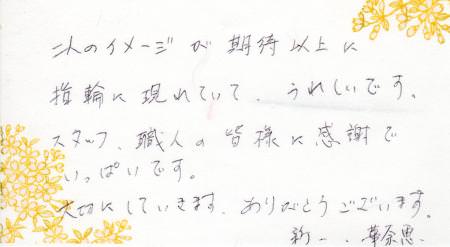 二人のイメージが期待以上に
指輪に現れていて、うれしいです。
スタッフ、職人の皆様に感謝で
いっぱいです。
大切にしていきます。ありがとうございます。